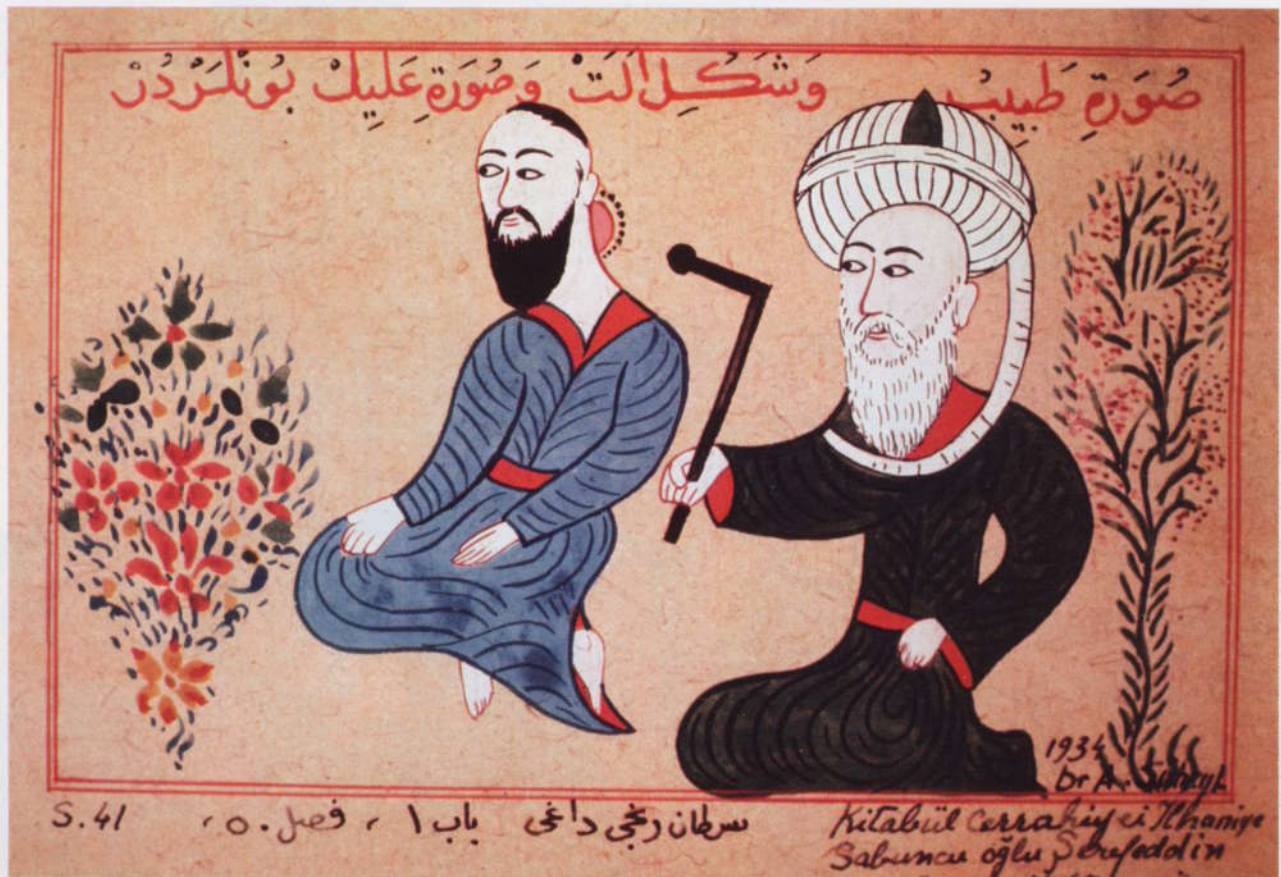 صُورَةِ طَبِيبْ وَشَكِلِ اٰلَتْ وَصُورَةِ عَلِيلْ بُونْلَرْدُرْ
1934
Dr A. Süheyl
S.41 سرطان رنجى داغى باب ١ ، فصل ٥٠ ،
Kitabül Cerrahiyei Ilhaniye
Sabuncu oğlu Şerefeddin